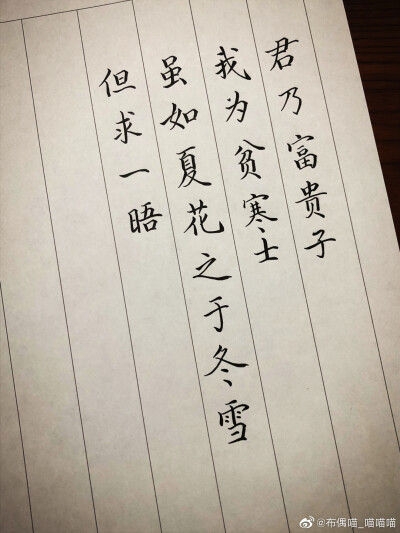 君乃富贵子
我为贫寒士
虽如夏花之于冬雪
但求一晤
@布偶喵_喵喵喵